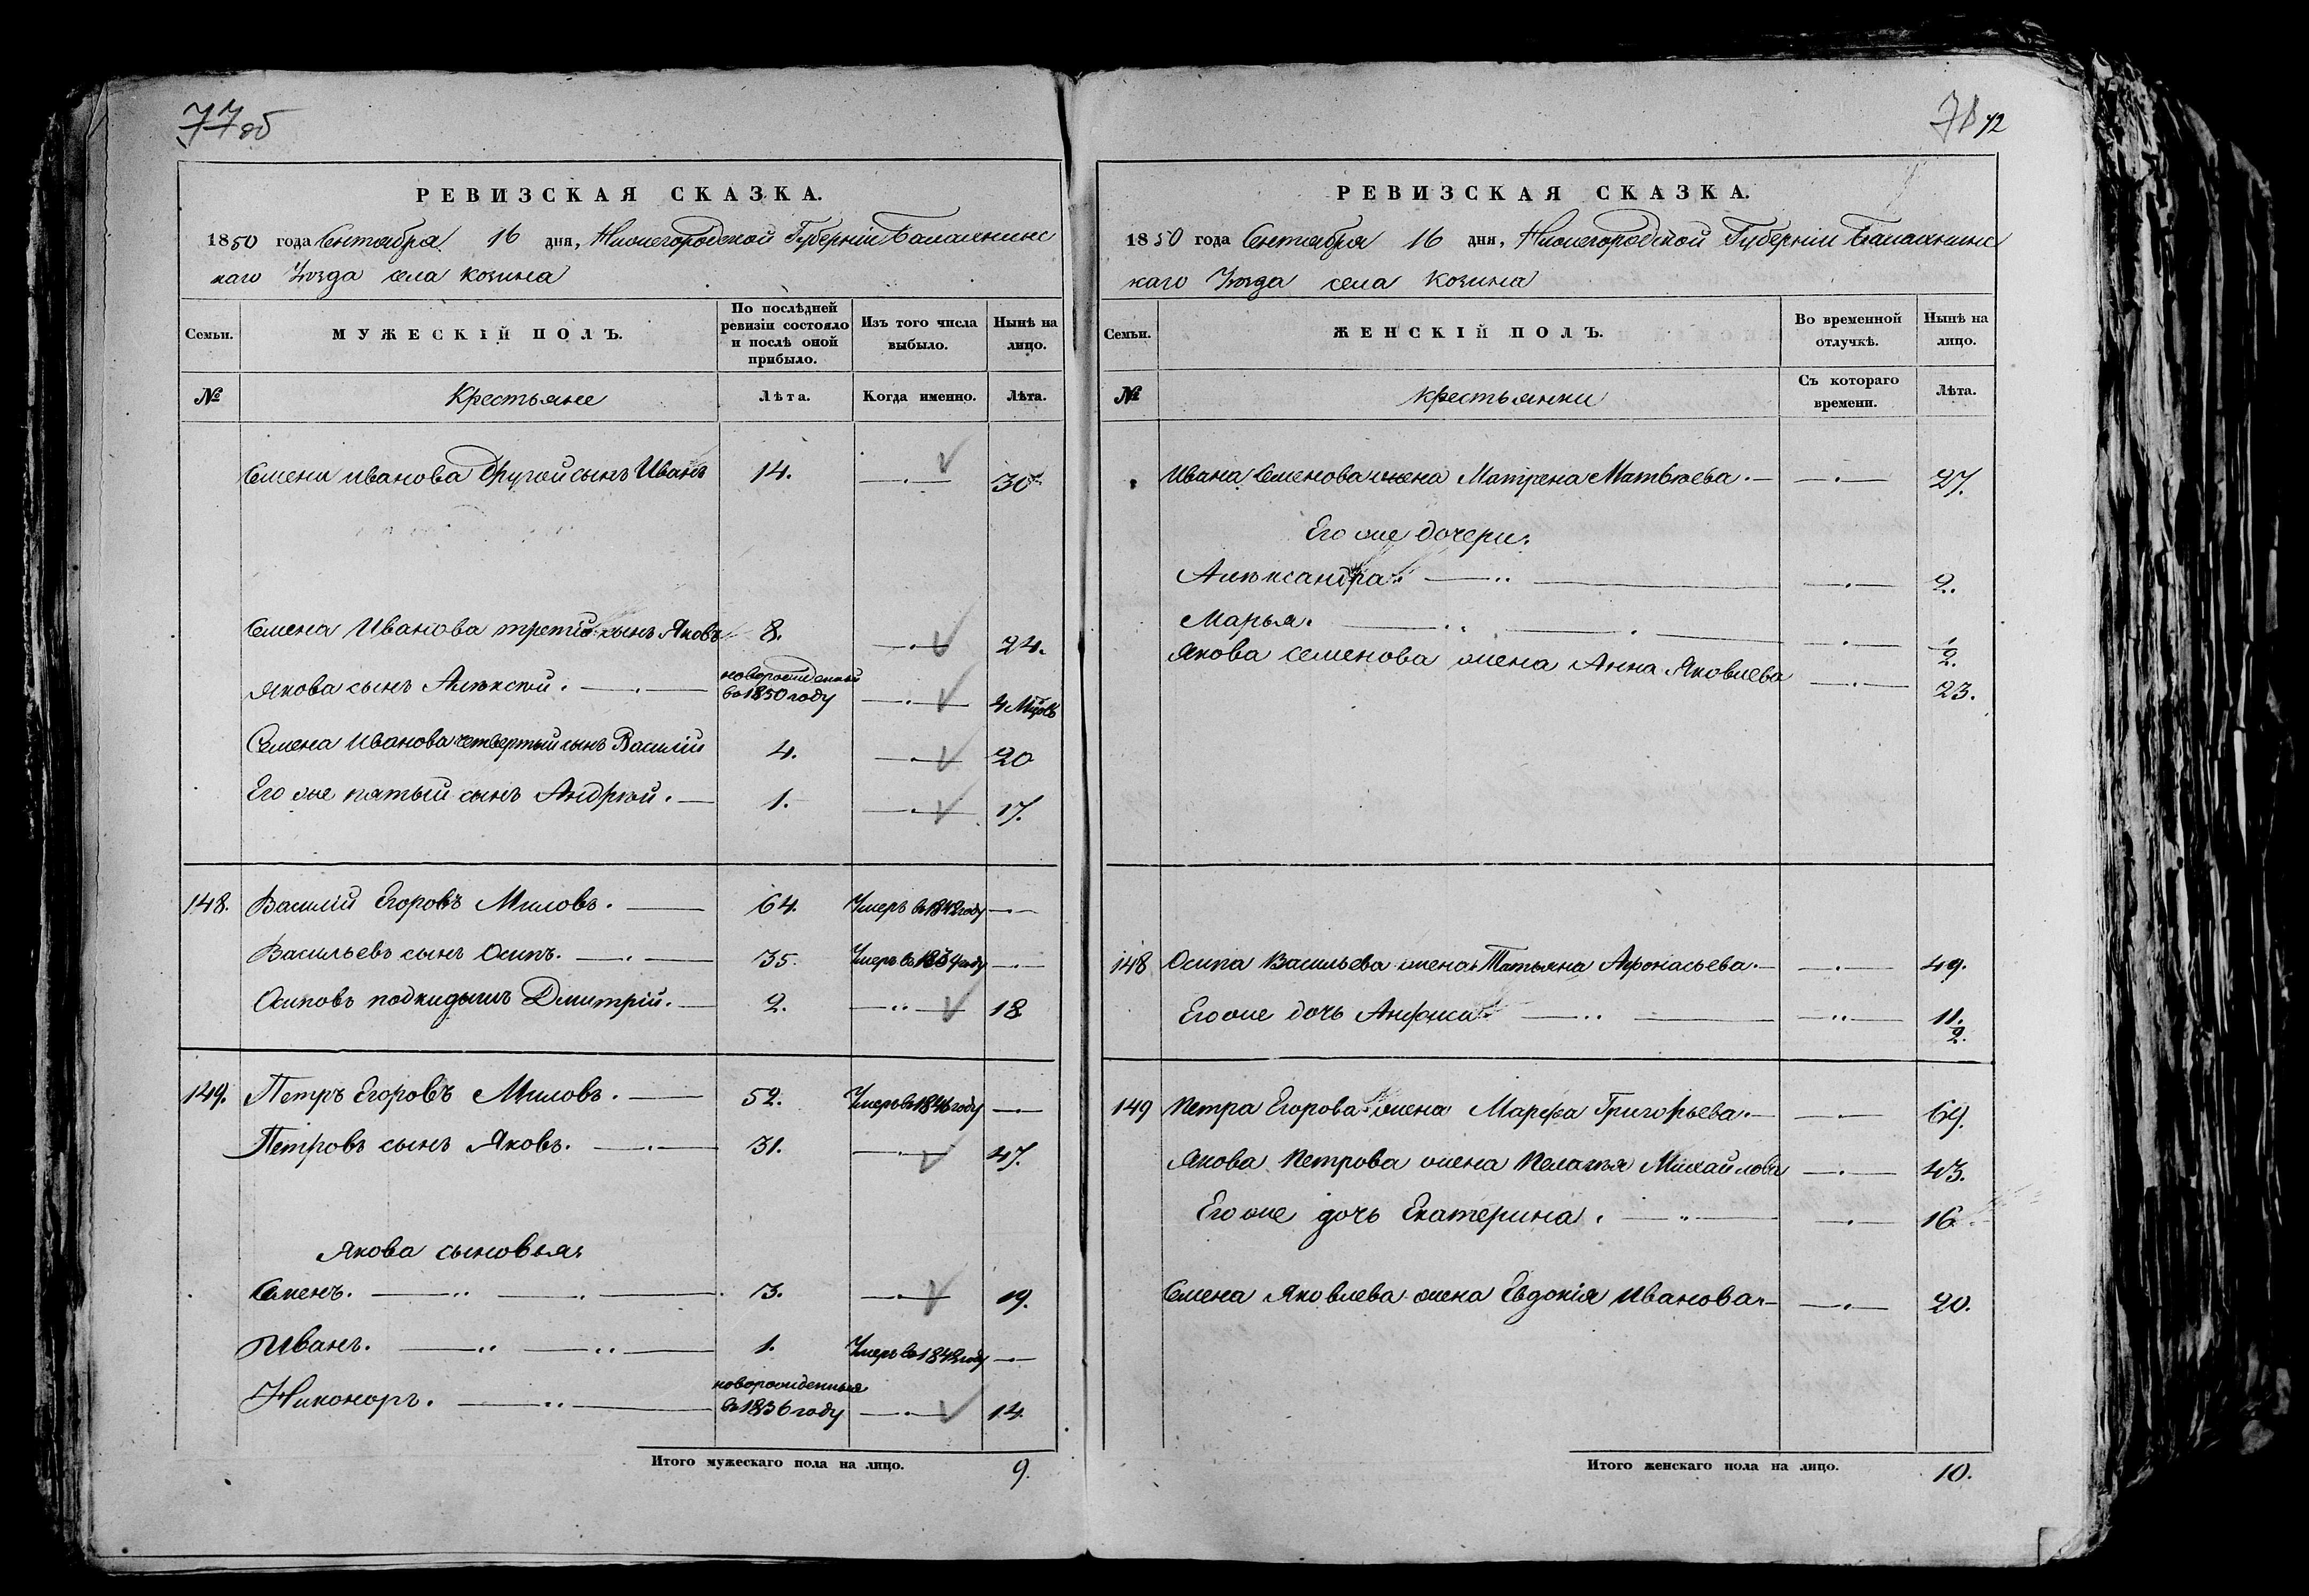 77 об
РЕВИЗСКАЯ СКАЗКА.
1850 года Сентября 16 дня, Нижегородской Губерніи Балахнинс
каго Уѣзда села Козина
Семьи.
МУЖЕСКІЙ ПОЛЪ.
По послѣдней
ревизіи состояло
и послѣ оной
прибыло.
Изъ того числа
выбыло.
Нынѣ на
лицо.
№ Крестьяне Лѣта. Когда именно. Лѣта.
Семена Иванова другой сынъ Иванъ 14. 30.
Семена Иванова третій сынъ Яковъ 8. 24.
Якова сынъ Алѣксѣй. новорожденный
въ 1850 году 4 Мцовъ
Семена Иванова четвертый сынъ Василій 4. 20
Его же пятый сынъ Андрѣй. 1. 17.
148. Василій Егоровъ Миловъ. 64. Умеръ въ 1842 году
Васильевъ сынъ Осипъ. 35. Умеръ въ 1834 году
Осиповъ подкидышъ Дмитрій. 2. 18
149. Петръ Егоровъ Миловъ. 52. Умеръ въ 1846 году
Петровъ сынъ Яковъ. 31. 47.
Якова сыновья
Семенъ. 3. 19.
Иванъ. 1. Умеръ въ 1842 году
Никоноръ. новорожденный
въ 1836 году 14.
Итого мужескаго пола на лицо. 9.
78 72
РЕВИЗСКАЯ СКАЗКА.
1850 года Сентября 16 дня, Нижегородской Губерніи Балахнинс
каго Уѣзда села Козина
Семьи.
ЖЕНСКІЙ ПОЛЪ.
Во временной
отлучкѣ.
Нынѣ на
лицо.
№ Крестьянки Съ котораго
времени. Лѣта.
Ивана Семенова жена Матрена Матвѣева. 27.
Его же дочери.
Алѣксандра. 2.
Марья. 1/2.
Якова Семенова жена Анна Яковлева 23.
148 Осипа Васильева жена Татьяна Афонасьева. 49.
Его же дочь Анфиса. 11.
2.
149 Петра Егорова жена Марфа Григорьева. 69.
Якова Петрова жена Пелагья Михайлова 43.
Его же дочь Екатерина. 16.
Семена Яковлева жена Евдокія Иванова 20.
Итого женскаго пола на лицо. 10.